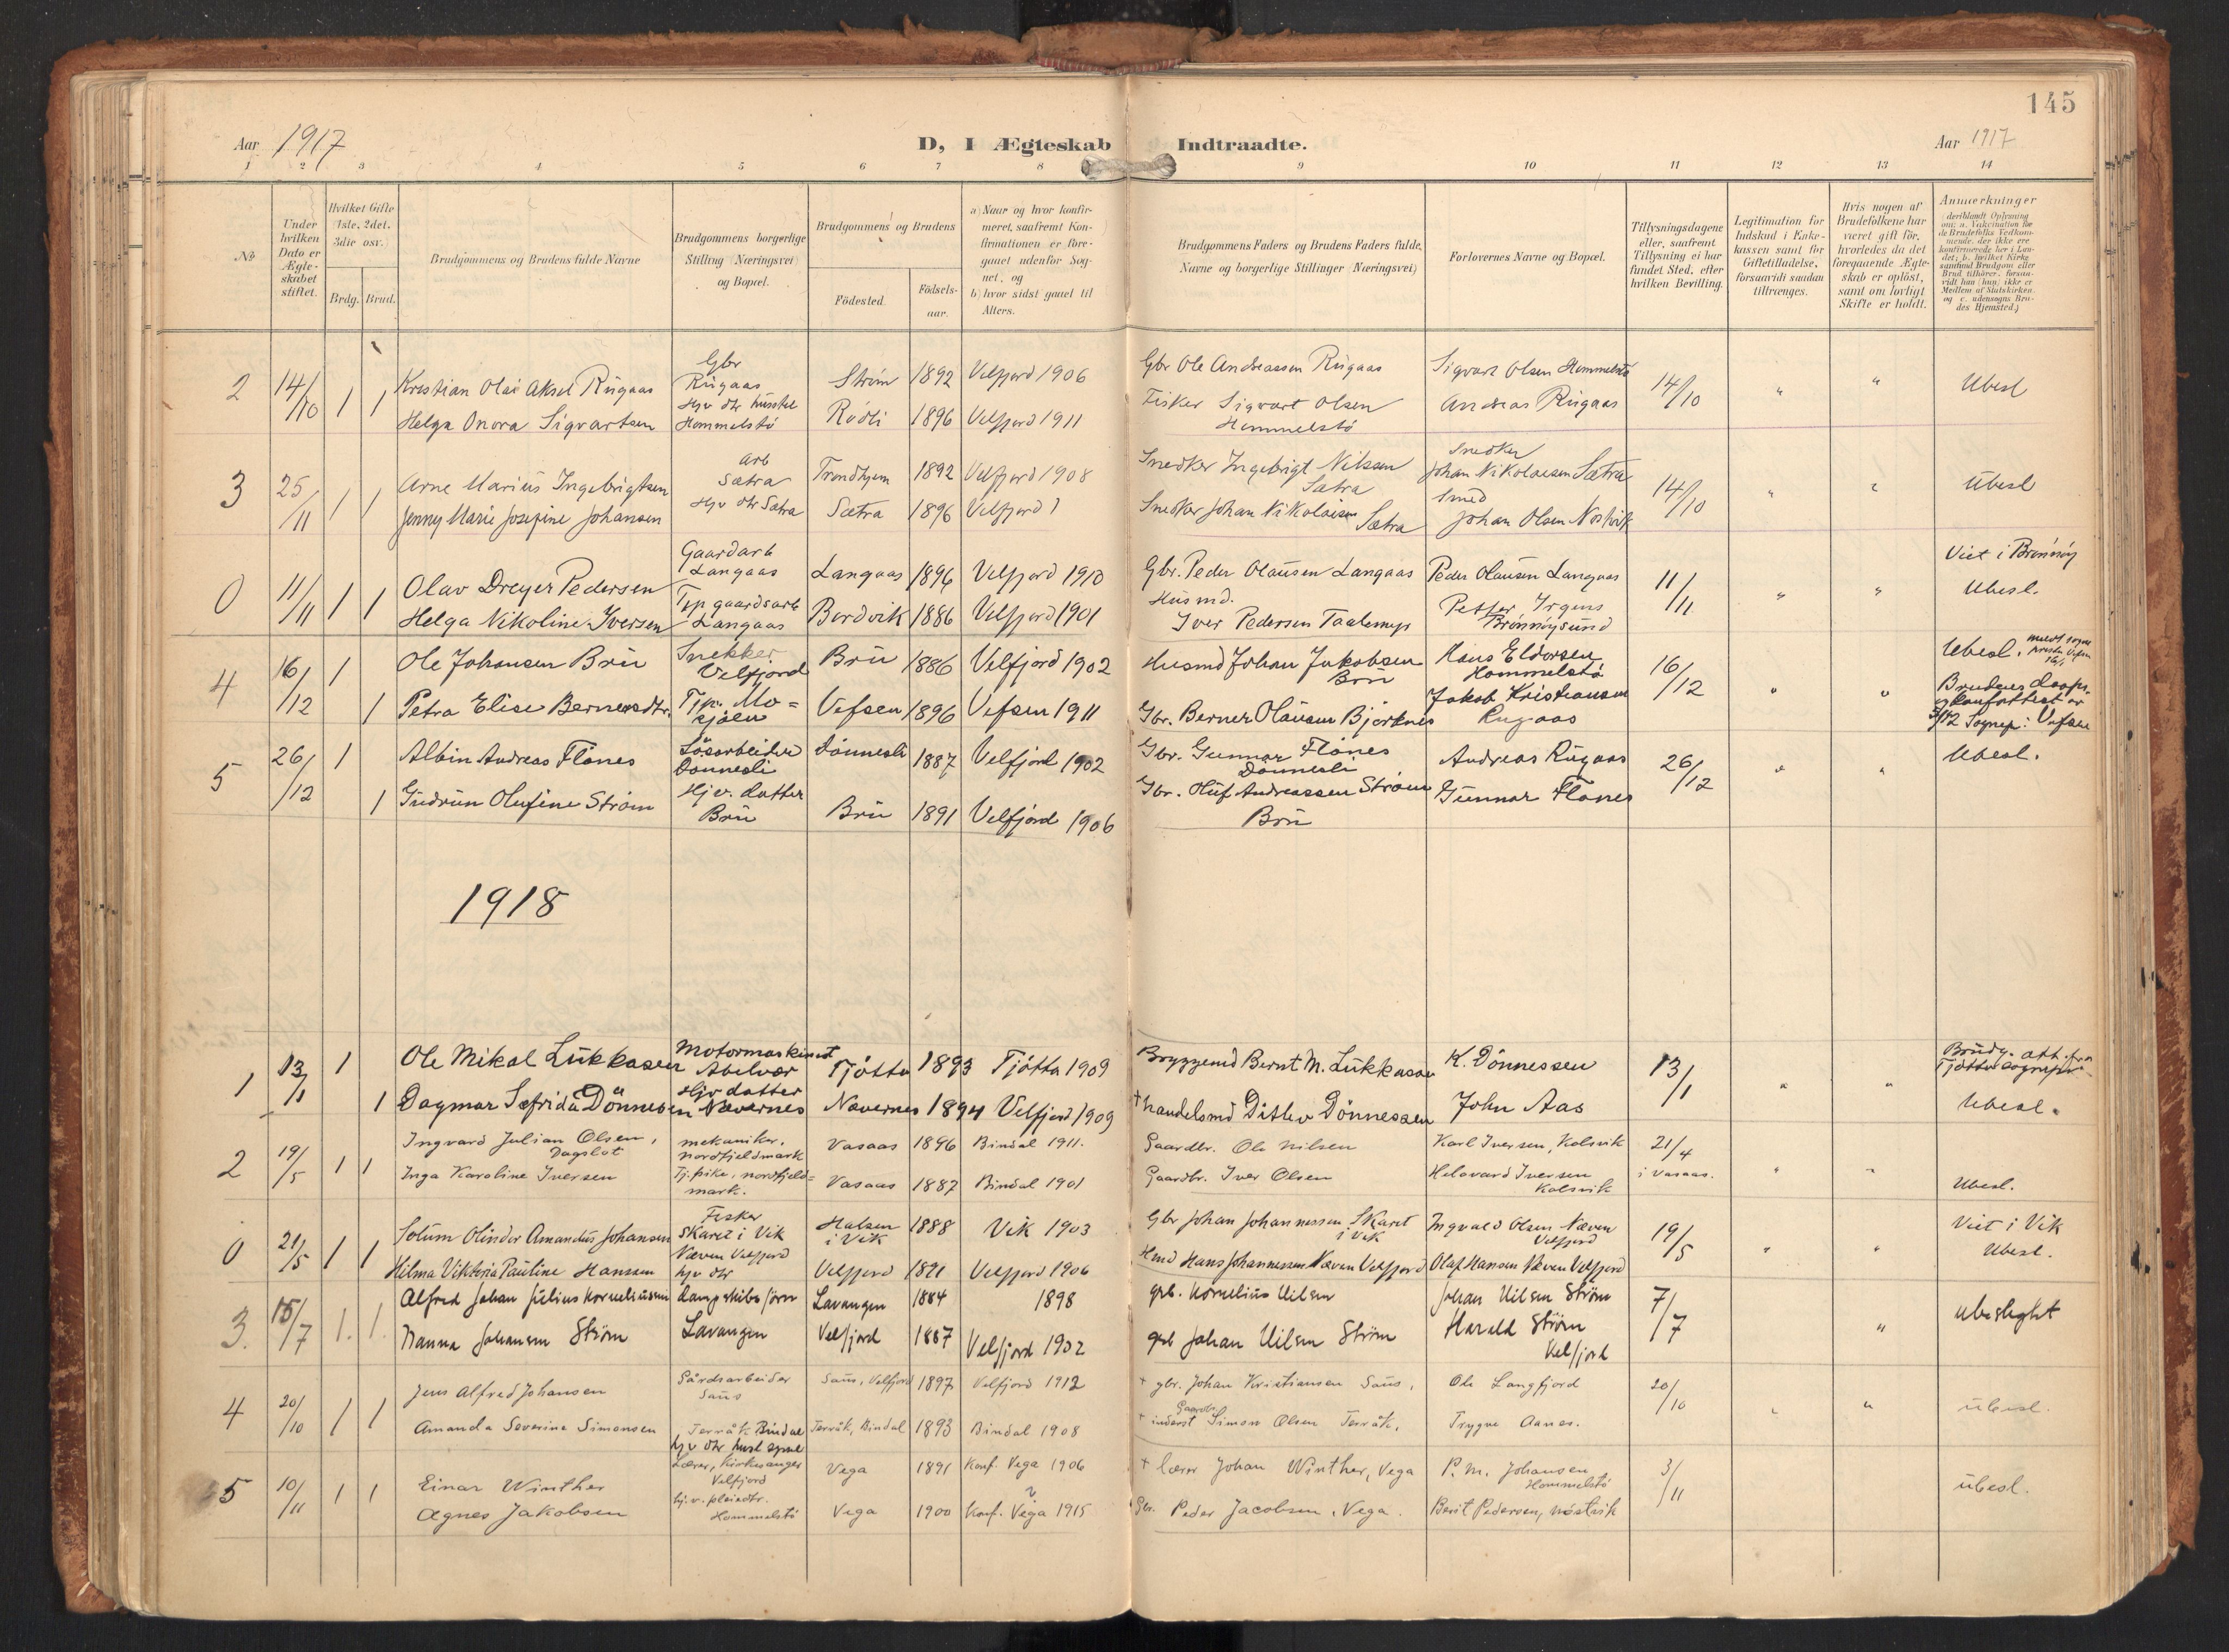 145
Aar 1917
D, I Ægteskab Indtraadte.
Aar 1917
1 2 3 4 5 6 7 8 9 10 11 12 13 14
No
Under hvilken Dato er Ægteskabet stiftet.
Hvilket Gifte (1ste, 2det, 3die osv.)
Brdg. Brud.
Brudgommens og Brudens fulde Navne
Brudgommens borgerlige Stilling (Næringsvei) og Bopæl.
Brudgommens og Brudens
Födested.
Födselsaar.
a) Naar og hvor konfirmeret, saafremt Konfirmationen er foregaaet udenfor Sognet, og
b) hvor sidst gaaet til Alters.
Brudgommens Faders og Brudens Faders fulde Navne og borgerlige Stillinger (Næringsvei)
Forlovernes Navne og Bopæl.
Tillysningsdagene eller, saafremt Tillysning ei har fundet Sted, efter hvilken Bevilling.
Legitimation for Indskud i Enkekassen samt for Giftetilladelse, forsaavidt saadan tiltrænges.
Hvis nogen af Brudefolkene har været gift för, hvorledes da det foregaaende Ægteskab er oplöst, samt om lovligt Skifte er holdt.
Anmærkninger
(deriblandt Oplysning om: a. Vakcination for de Brudefolks Vedkommende, der ikke ere konfirmerede her i Landet; b. hvilket Kirkesamfund Brudgom eller Brud tilhörer, forsaavidt han (hun) ikke er Medlem af Statskirken, og c. udensogns Brudes Hjemsted.)
2 14/10 1 1 Kristian Olai Aksel Rugaas Gbr Rugaas Strøm 1892 Velfjord 1906 Gbr Ole Andreassen Rugaas Sigvart Olsen Hommelstø 14/10 " " Ubesl
Helga Onora Sigvartsen Hjv dtr Hommelstø Rødli 1896 Velfjord 1911 Fisker Sigvart Olsen Hommelstø Andreas Rugaas
3 25/11 1 1 Arne Marius Ingebrigtsen Arb Sætra Trondhjem 1892 Velfjord 1908 Snedker Ingebrigt Nilssen Sætra Snedker Johan Nikolaisen Sætra 14/10 " " Ubesl
Jenny Marie Josefine Johansen Hjv dtr Sætra Sætra 1896 Velfjord ? Snedker Johan Nikolaisen Sætra Smed Johan Olsen Nøstvik
0 11/11 1 1 Olav Dreyer Pedersen Gaardarb Langaas Langaas 1896 Velfjord 1910 Gbr. Peder Olausen Langaas Peder Olausen Langaas 11/11 " " Viet i Brønnøy Ubesl.
Helga Nikoline Iversen Tjp gaardsarb Langaas Bordvik 1886 Velfjord 1901 Husmd. Iver Pedersen Petter Irgens Brønnøysund
4 16/12 1 Ole Johansen Bru Snekker Velfjord Bru 1886 Velfjord 1902 Husmd Johan Jakobsen Bru Hans Eldorsen Hommelstø 16/12 " " Ubesl.
1 Petra Elise Bernersdtr. Tjp. Mosjøen Vefsen 1896 Vefsen 1911 Gbr. Berner Olausen Bjørknes Jakob Kristiansen Rugaas Brudens daaps- og konf.attest av 3/12 Sognep. i Vefsen
5 26/12 1 Albin Andreas Flønes Løsarbeider Dønnesli Dønnesli 1887 Velfjord 1902 Gbr. Gunnar Flønes Dønnesli Andreas Rugaas 26/12 " " Ubesl.
1 Gudrun Olufine Strøm Hjv. datter Bru Bru 1891 Velfjord 1906 Gbr. Oluf Andreassen Strøm Bru Gunnar Flønes
1918
1 13/1 1 Ole Mikal Lukkasen Motormaskinist Abelvær Tjøtta 1893 Tjøtta 1909 Byggemd Bernt M. Lukkasen K. Dønnessen 13/1 " " Brudg. att. fra Tjøtta sognepr.
1 Dagmar Sefrida Dönnesen Hjv datter Nævernes Nævernes 1894 Velfjord 1909 † Handelsmd Ditlev Dönnessen John Aas Ubesl.
2 19/5 1 1 Ingvard Julian Olsen, Dagslot mekaniker. nordfjeldmark Vasaas 1896 Bindal 1911. Gaardbr. Ole Nilsen Karl Iversen, Kolsvik 21/4 i Vasaas. " "
Inga Karoline Iversen Tj.pike, nordfjeldmark. Vasaas 1887 Bindal 1901 Gaardbr. Iver Olsen Helavard Iversen Kolsvik Ubesl.
0 21/5 1 1 Solum Olinder Amandus Johansen Fisker Skaret i Vik Halsen i Vik 1888 Vik 1903 Gbr Johan Johannessen Skaret i Vik Ingvald Olsen Næven Velfjord 19/5 " " Viet i Vik Ubesl.
Hilma Viktoria Pauline Hanssen Næven Velfjord hjv dtr Velfjord 1891 Velfjord 1906 Hmd Hans Johannessen Næven Velfjord Olaf Hansen Næven Velfjord
3. 15/7 1. 1. Alfred Johan Julius Korneliussen Lavangen 1884 1898 grb. Kornelius Nilsen Johan Nilsen Strøm 7/7 " ubeslegtet
Nanna Johansen Strøm Lavangen Velfjord 1887 Velfjord 1902 grb Johan Nilsen Strøm Harald Strøm Velfjord
4 20/10 1 1 Jens Alfred Johansen Gårdsarbeider Saus Saus, Velfjord 1897 Velfjord 1912 † gbr. Johan Kristiansen Saus, Ole Langfjord 20/10 " " ubesl.
Amanda Severine Simonsen Terråk Bindal hjv dtr Terråk, Bindal 1893 Bindal 1908 † inderst Gaardbr. Simon Olsen Terråk, Trygve Aanes.
5 10/11 1 1 Einar Winther Lærer, Kirkesanger Velfjord Vega 1891 Konf. Vega 1906 † lærer Johan Winther, Vega P. M. Johansen Hommelstø 3/11 ubesl.
Agnes Jakobsen hj. v. pleiedtr. Hommelstø Vega 1900 Konf. Vega 1915 Gbr. Peder Jacobsen, Vega. Berit Pedersen, Nøstvik